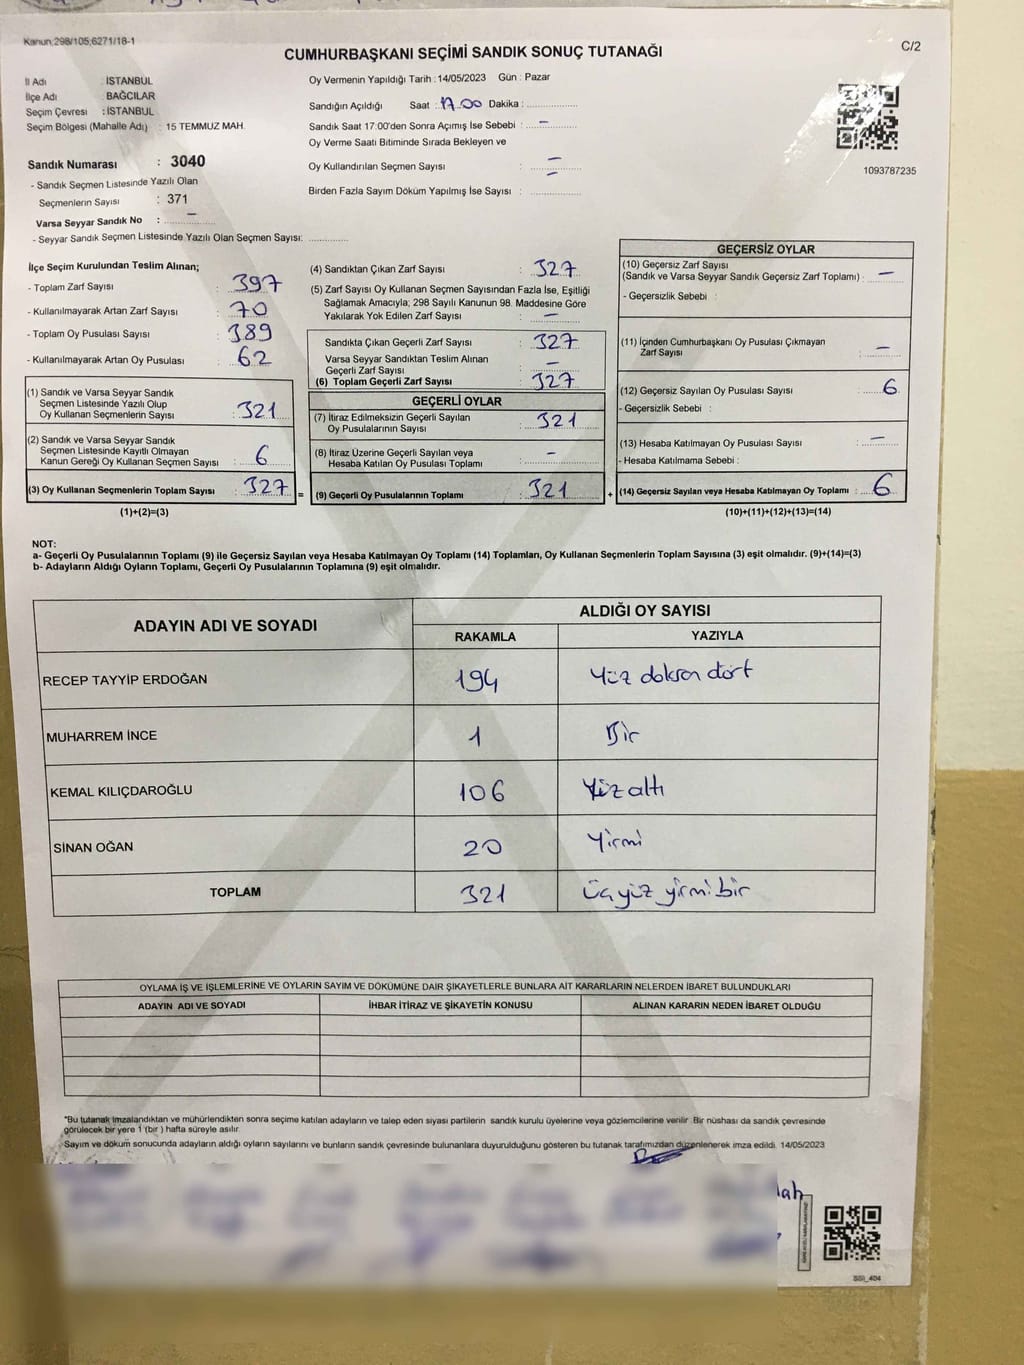 Kanun 298/105;6271/18-1
CUMHURBAŞKANI SEÇİMİ SANDIK SONUÇ TUTANAĞI
C/2
İl Adı : İSTANBUL
İlçe Adı : BAĞCILAR
Seçim Çevresi : İSTANBUL
Seçim Bölgesi (Mahalle Adı) : 15 TEMMUZ MAH.
Sandık Numarası : 3040
- Sandık Seçmen Listesinde Yazılı Olan
Seçmenlerin Sayısı : 371
Varsa Seyyar Sandık No : –
- Seyyar Sandık Seçmen Listesinde Yazılı Olan Seçmen Sayısı: ..............
Oy Vermenin Yapıldığı Tarih : 14/05/2023 Gün : Pazar
Sandığın Açıldığı Saat : 17.00 Dakika : ..............
Sandık Saat 17:00'den Sonra Açımış İse Sebebi : –
Oy Verme Saati Bitiminde Sırada Bekleyen ve
Oy Kullandırılan Seçmen Sayısı : –
Birden Fazla Sayım Döküm Yapılmış İse Sayısı : –
1093787235
İlçe Seçim Kurulundan Teslim Alınan;
- Toplam Zarf Sayısı : 397
- Kullanılmayarak Artan Zarf Sayısı : 70
- Toplam Oy Pusulası Sayısı : 389
- Kullanılmayarak Artan Oy Pusulası : 62
(1) Sandık ve Varsa Seyyar Sandık
Seçmen Listesinde Yazılı Olup
Oy Kullanan Seçmenlerin Sayısı : 321
(2) Sandık ve Varsa Seyyar Sandık
Seçmen Listesinde Kayıtlı Olmayan
Kanun Gereği Oy Kullanan Seçmen Sayısı : 6
(3) Oy Kullanan Seçmenlerin Toplam Sayısı : 327
(1)+(2)=(3)
(4) Sandıktan Çıkan Zarf Sayısı : 327
(5) Zarf Sayısı Oy Kullanan Seçmen Sayısından Fazla İse, Eşitliği
Sağlamak Amacıyla; 298 Sayılı Kanunun 98. Maddesine Göre
Yakılarak Yok Edilen Zarf Sayısı : –
Sandıkta Çıkan Geçerli Zarf Sayısı : 327
Varsa Seyyar Sandıktan Teslim Alınan
Geçerli Zarf Sayısı : –
(6) Toplam Geçerli Zarf Sayısı : 327
GEÇERLİ OYLAR
(7) İtiraz Edilmeksizin Geçerli Sayılan
Oy Pusulalarının Sayısı : 321
(8) İtiraz Üzerine Geçerli Sayılan veya
Hesaba Katılan Oy Pusulası Toplamı : –
= (9) Geçerli Oy Pusulalarının Toplamı : 321 +
GEÇERSİZ OYLAR
(10) Geçersiz Zarf Sayısı
(Sandık ve Varsa Seyyar Sandık Geçersiz Zarf Toplamı) : –
- Geçersizlik Sebebi :
(11) İçinden Cumhurbaşkanı Oy Pusulası Çıkmayan
Zarf Sayısı : –
(12) Geçersiz Sayılan Oy Pusulası Sayısı : 6
- Geçersizlik Sebebi :
(13) Hesaba Katılmayan Oy Pusulası Sayısı : –
- Hesaba Katılmama Sebebi :
(14) Geçersiz Sayılan veya Hesaba Katılmayan Oy Toplamı : 6
(10)+(11)+(12)+(13)=(14)
NOT:
a- Geçerli Oy Pusulalarının Toplamı (9) ile Geçersiz Sayılan veya Hesaba Katılmayan Oy Toplamı (14) Toplamları, Oy Kullanan Seçmenlerin Toplam Sayısına (3) eşit olmalıdır. (9)+(14)=(3)
b- Adayların Aldığı Oyların Toplamı, Geçerli Oy Pusulalarının Toplamına (9) eşit olmalıdır.
ADAYIN ADI VE SOYADI
ALDIĞI OY SAYISI
RAKAMLA YAZIYLA
RECEP TAYYİP ERDOĞAN 194 Yüz doksan dört
MUHARREM İNCE 1 Bir
KEMAL KILIÇDAROĞLU 106 Yüz altı
SİNAN OĞAN 20 Yirmi
TOPLAM 321 Üçyüz yirmi bir
OYLAMA İŞ VE İŞLEMLERİNE VE OYLARIN SAYIM VE DÖKÜMÜNE DAİR ŞİKAYETLERLE BUNLARA AİT KARARLARIN NELERDEN İBARET BULUNDUKLARI
ADAYIN ADI VE SOYADI İHBAR İTİRAZ VE ŞİKAYETİN KONUSU ALINAN KARARIN NEDEN İBARET OLDUĞU
*Bu tutanak imzalandıktan ve mühürlendikten sonra seçime katılan adayların ve talep eden siyasi partilerin sandık kurulu üyelerine veya gözlemcilerine verilir. Bir nüshası da sandık çevresinde
görülecek bir yere 1 (bir) hafta süreyle asılır.
Sayım ve döküm sonucunda adayların aldığı oyların sayılarını ve bunların sandık çevresinde bulunanlara duyurulduğunu gösteren bu tutanak tarafımızdan düzenlenerek imza edildi. 14/05/2023
SSİ_404